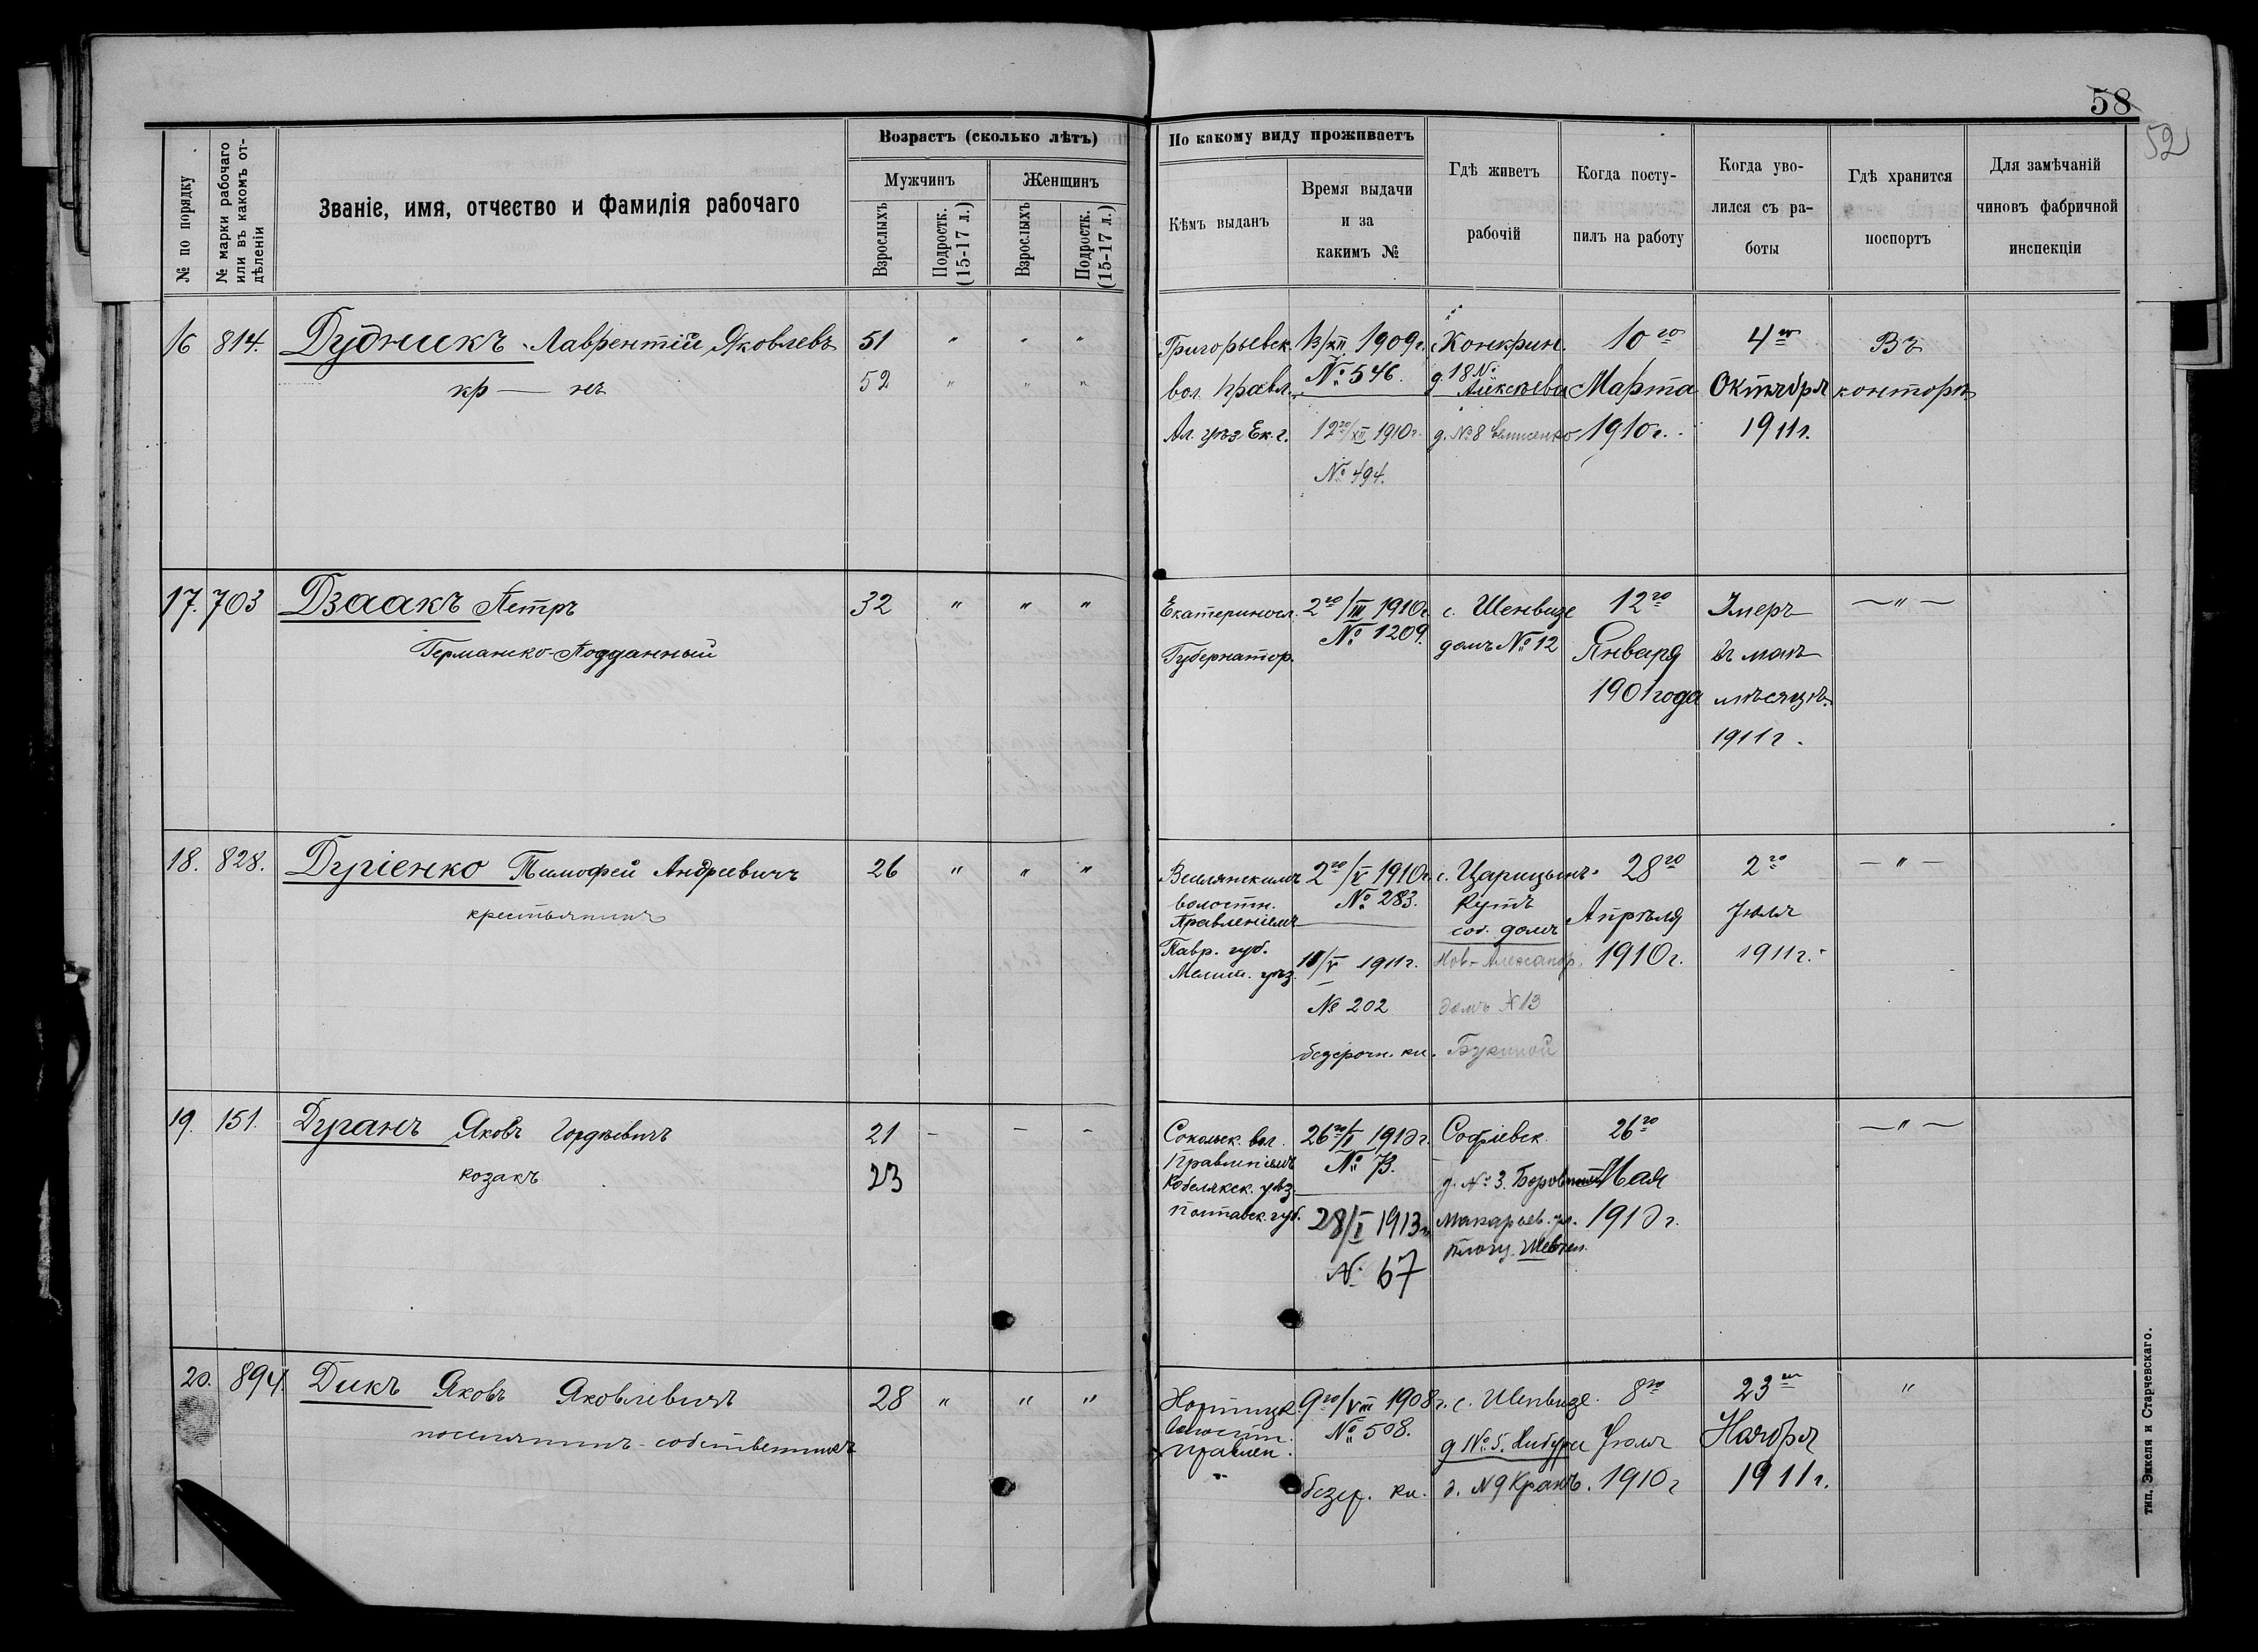 58
52
№ по порядку
№ марки рабочаго или въ какомъ отдѣленіи
Званіе, имя, отчество и фамилія рабочаго
Возрастъ (сколько лѣтъ)
Мужчинъ
Женщинъ
Взрослыхъ
Подростк. (15-17 л.)
Взрослыхъ
Подростк. (15-17 л.)
По какому виду проживаетъ
Кѣмъ выданъ
Время выдачи
и за
какимъ №
Гдѣ живетъ
рабочій
Когда посту-
пилъ на работу
Когда уво-
лился съ ра-
боты
Гдѣ хранится
поспортъ
Для замѣчаній
чиновъ фабричной
инспекціи
16 814. Дудникъ Лаврентій Яковлевъ 51 " " "
кр — нъ 52 " " "
Григорьевск.
вол. правл.
Ал. уѣз. Ек. г.
13/XII 1909г.
№ 546.
12го/XII 1910г.
№ 494.
с. Конкрин.
д. 18 №
Алексѣева
д. №8
10го
Марта
1910г.
4го
Октября
1911г.
Въ
конторѣ
17. 703 Дзаакъ Петръ 32 " " "
Германско-Подданный
Екатериносл.
Губернатор.
2го/III 1910г.
№ 1209.
с. Шенвизе
домъ № 12
12го
Января
1901 года
Умеръ
въ маѣ
мѣсяцѣ
1911г.
— " —
18. 828. Дугіенко Тимофей Андреевичъ 26 " " "
крестьянинъ
Веселянскимъ
волостн.
Правленіемъ
Тавр. губ.
Мелит. уѣз.
2го/V 1910г.
№ 283.
18/V 1911г.
№ 202
безсрочн. кн.
с. Царицынъ-
Кутъ
соб. домъ
Нов-Александр.
домъ № 13
Букиной
28го
Апрѣля
1910г.
2го
Іюля
1911г.
— " —
19. 151. Дуганъ Яковъ Гордѣевичъ 21 - - -
козакъ 23
Сокольск. вол.
Правленіемъ
Кобелякск. уѣз.
Полтавск. губ.
26го/I 1910г.
№ 73.
28/I 1913г.
№ 67
Софіевск.
д. № 3.
Макарьев. ул.
площ.
26го
Мая
1910г.
— " —
20. 894. Дикъ Яковъ Яковлевичъ 28 " " "
поселянинъ-собственникъ
Хортицк.
волостн.
Правлен.
9го/VIII 1908г.
№ 508.
безср. кн.
с. Шенвизе.
д № 5. Нибура
д. № 9 Кранъ.
8го
Іюля
1910г
23го
Ноября
1911г.
"
тип. Эккеля и Старчевскаго.